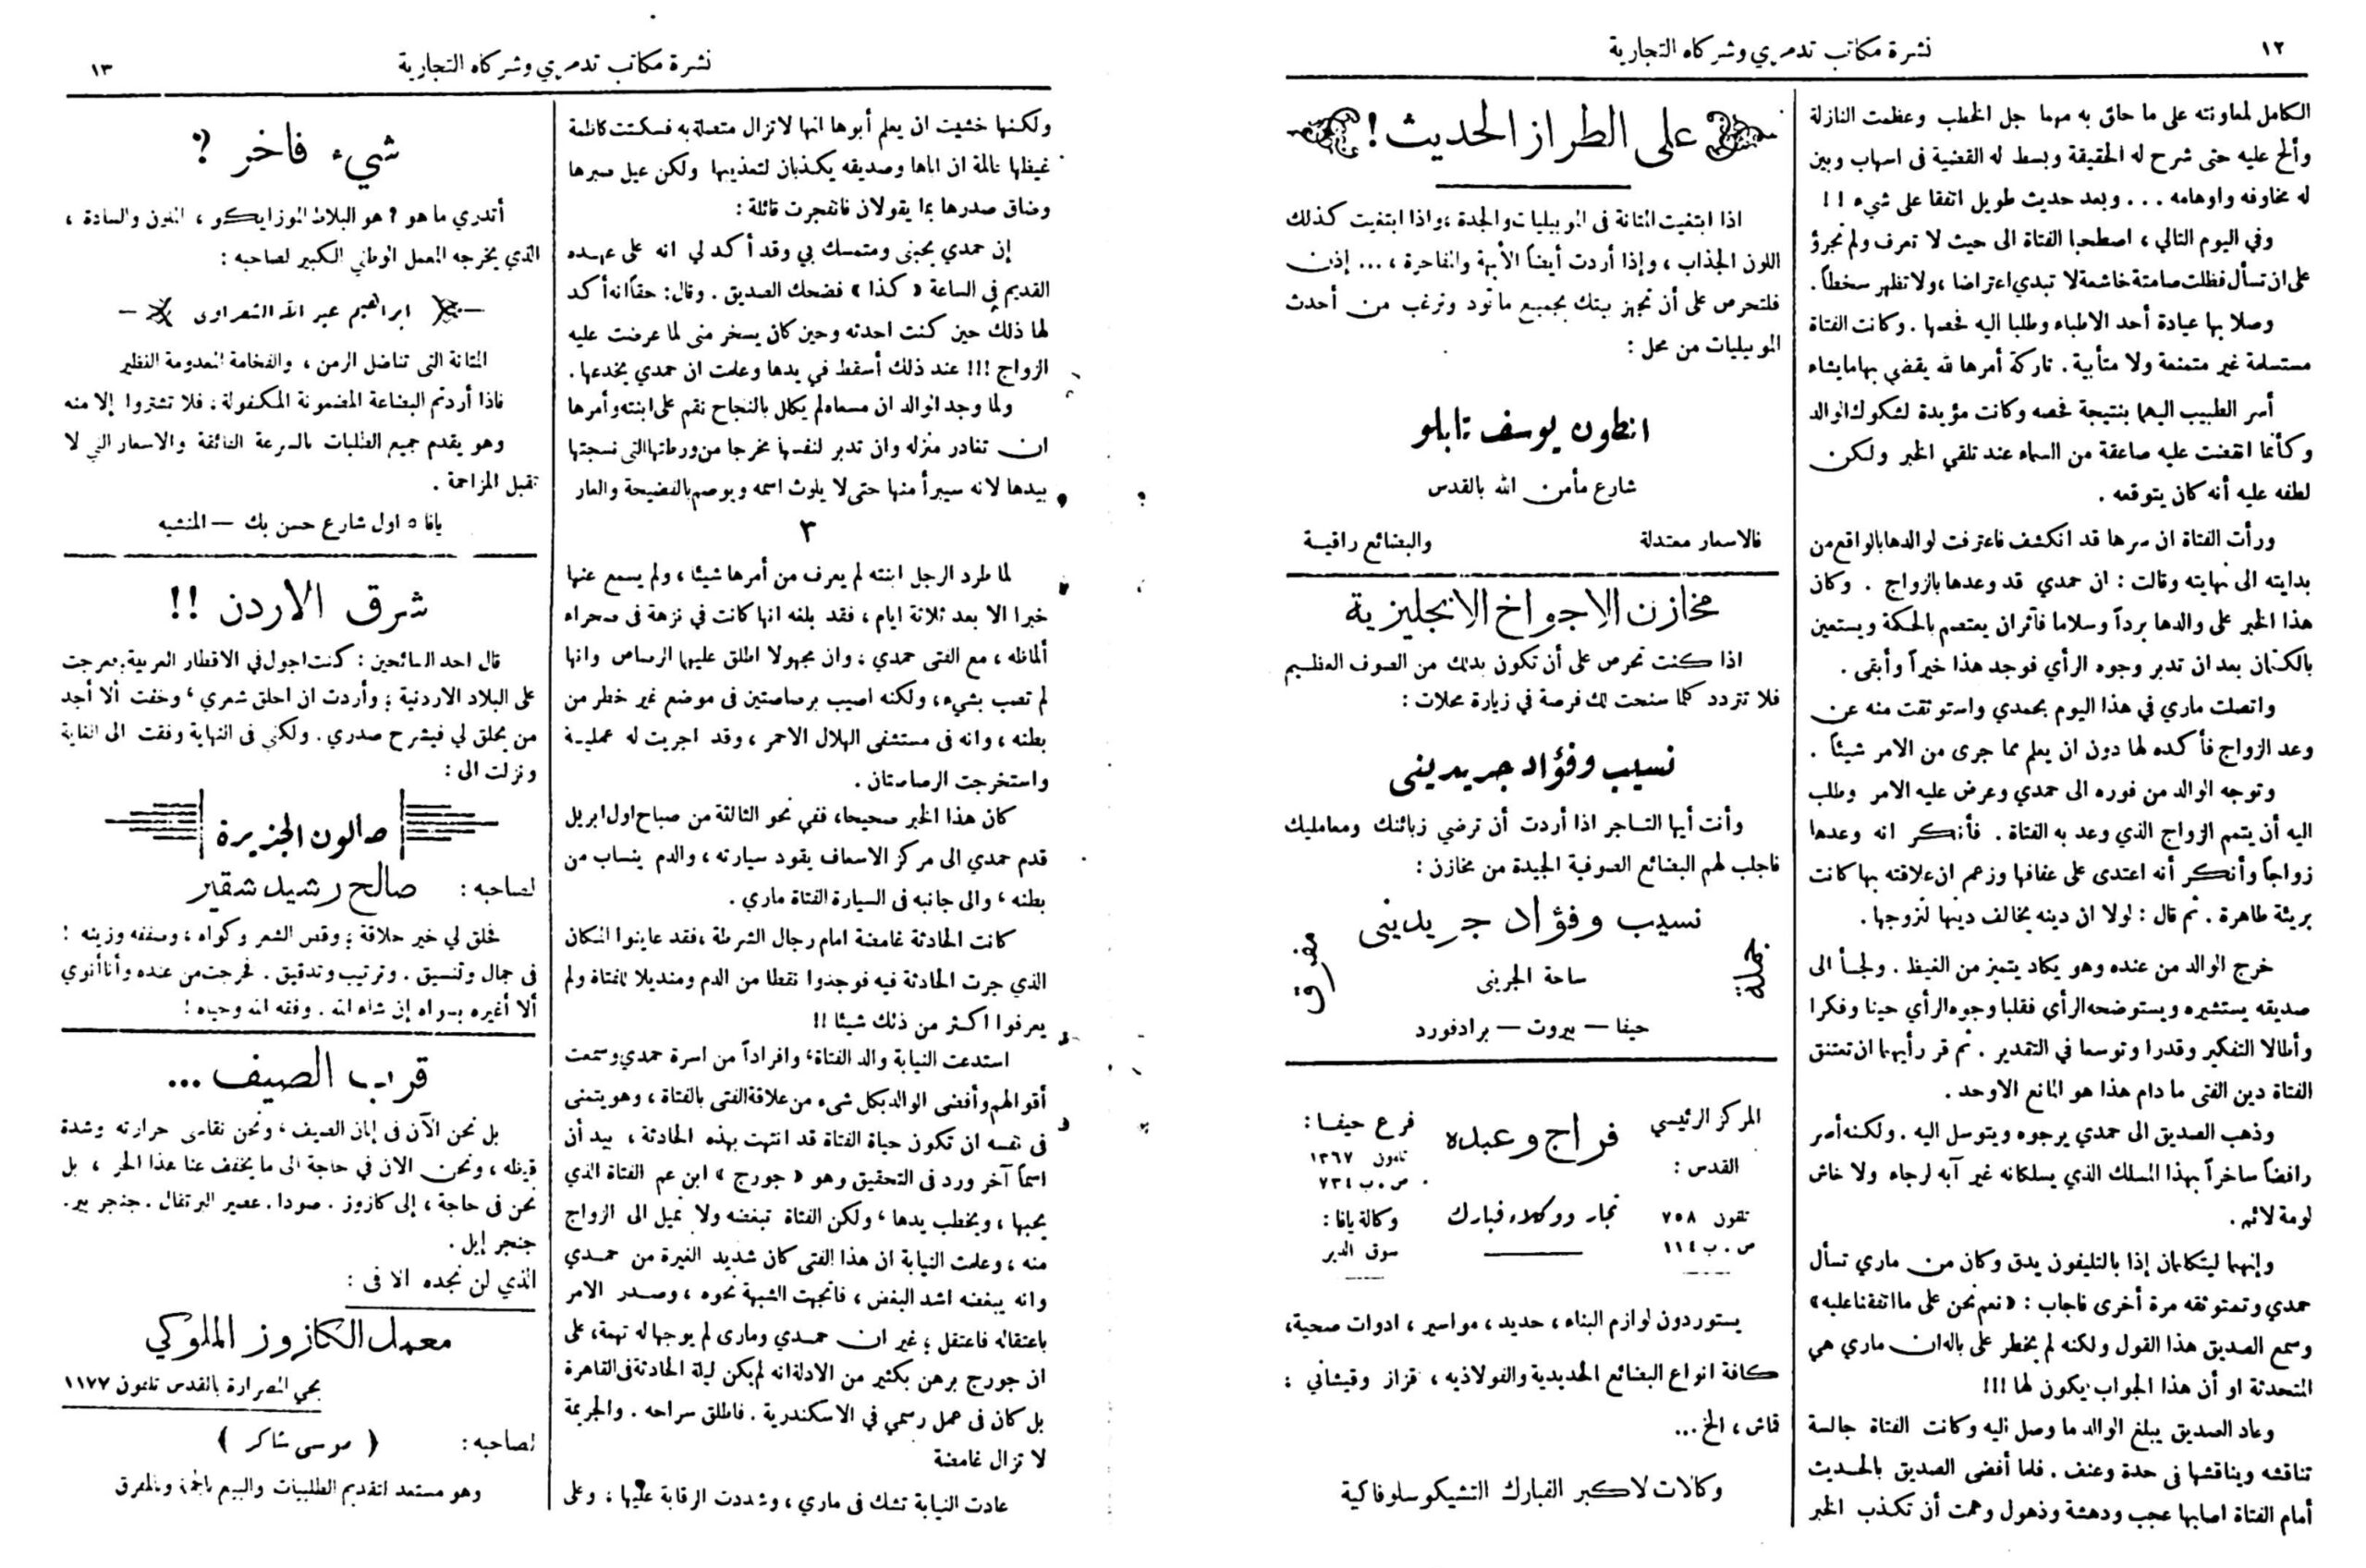 ١٢
نشرة مكاتب تدمري وشركاه التجارية
الكامل لمعاونته على ما حاق به مهما جل الخطب وعظمت النازلة
وألح عليه حتى شرح له الحقيقة وبسط له القضية فى اسهاب وبين
له مخاوفه واوهامه ... وبعد حديث طويل اتفقا على شيء !!
وفي اليوم التالي ، اصطحبا الفتاة الى حيث لا تعرف ولم تجرؤ
على ان تسأل فظلت صامتة خاشعة لا تبدي اعتراضا ، ولا تظهر سخطاً .
وصلا بها عيادة أحد الاطباء وطلبا اليه فحصها . وكانت الفتاة
مستسلمة غير متمنعة ولا متأبية . تاركة أمرها لله يقضي بها ما يشاء
أسر الطبيب اليهما بنتيجة فحصه وكانت مؤيدة لشكوك الوالد
وكأنما انقضت عليه صاعقة من السماء عند تلقي الخبر ولكن
لطفه عليه أنه كان يتوقعه .
ورأت الفتاة ان سرها قد انكشف فاعترفت لوالدها بالواقع من
بدايته الى نهايته وقالت : ان حمدي قد وعدها بالزواج . وكان
هذا الخبر على والدها برداً وسلاما فآثر ان يعتصم بالحكمة ويستعين
بالكتمان بعد ان تدبر وجوه الرأي فوجد هذا خيراً وأبقى .
واتصلت ماري في هذا اليوم بحمدي واستوثقت منه عن
وعد الزواج فأكده لها دون ان يعلم مما جرى من الامر شيئاً .
وتوجه الوالد من فوره الى حمدي وعرض عليه الامر وطلب
اليه أن يتمم الزواج الذي وعد به الفتاة . فأنكر انه وعدها
زواجاً وأنكر أنه اعتدى على عفافها وزعم ان علاقته بها كانت
بريئة طاهرة . ثم قال : لولا ان دينه يخالف دينها لتزوجها .
خرج الوالد من عنده وهو يكاد يتميز من الغيظ . ولجأ الى
صديقه يستشيره ويستوضحه الرأي فقلبا وجوه الرأي حينا وفكرا
وأطالا التفكير وقدرا وتوسعا في التقدير . ثم قر رأيهما ان تعتنق
الفتاة دين الفتى ما دام هذا هو المانع الاوحد .
وذهب الصديق الى حمدي يرجوه ويتوسل اليه . ولكنه أصر
رافضاً ساخراً بهذا المسلك الذي يسلكانه غير آبه لرجاء ولا خاش
لومة لائم .
وإنهما ليتكلمان إذا بالتليفون يدق وكان من ماري تسأل
حمدي وتستوثقه مرة أخرى فاجاب : «نعم نحن على ما اتفقنا عليه»
وسمع الصديق هذا القول ولكنه لم يخطر على باله ان ماري هي
المتحدثة او أن هذا الجواب يكون لها !!!
وعاد الصديق يبلغ الوالد ما وصل اليه وكانت الفتاة جالسة
تناقشه ويناقشها فى حدة وعنف . فلما أفضى الصديق بالحديث
أمام الفتاة اصابها عجب ودهشة وذهول وهمت أن تكذب الخبر
على الطراز الحديث !
اذا ابتغيت المتانة فى الموبيليات والجدة ، واذا ابتغيت كذلك
اللون الجذاب ، وإذا أردت أيضاً الأبهة والفاخرة ، ... إذن
فلتحرص على أن تجهز بيتك بجميع ما تود وترغب من أحدث
الموبيليات من محل :
انطون يوسف تابلو
شارع مأمن الله بالقدس
فالاسعار معتدلة
والبضائع راقية
مخازن الاجواخ الانجليزية
اذا كنت تحرص على أن تكون بدلك من الصوف العظيم
فلا تتردد كلما سنحت لك فرصة في زيارة محلات :
نسيب وفؤاد جريديني
وأنت أيها التاجر اذا أردت أن ترضي زبائنك ومعامليك
فاجلب لهم البضائع الصوفية الجيدة من مخازن :
نسيب وفؤاد جريديني
جملة
مفرق
ساحة الجريني
حيفا — بيروت — برادفورد
المركز الرئيسي
القدس :
تلفون ٧٥٨
ص . ب ١١٤
فراج وعبده
تجار ووكلاء فبارك
فرع حيفا :
تلفون ١٣٦٧
ص . ب ٧٣٤
وكالة يافا :
سوق الدير
يستوردون لوازم البناء ، حديد ، مواسير ، ادوات صحية ،
كافة انواع البضائع الحديدية والفولاذيه ، قزاز وقيشاني :
قماش ، الخ ...
وكالات لاكبر الفبارك التشيكوسلوفاكية
نشرة مكاتب تدمري وشركاه التجارية
١٣
ولكنها خشيت ان يعلم أبوها انها لا تزال متصلة به فسكتت كاظمة
غيظها عالمة ان اباها وصديقه يكذبان لتعذيبها ولكن عيل صبرها
وضاق صدرها بما يقولان فانفجرت قائلة :
إن حمدي يحبنى ومتمسك بي وقد أكد لي انه على عهده
القديم فى الساعة « كذا » فضحك الصديق . وقال : حقاً انه أكد
لها ذلك حين كنت احدثه وحين كان يسخر منى لما عرضت عليه
الزواج !!! عند ذلك أسقط في يدها وعلمت ان حمدي يخدعها .
ولما وجد الوالد ان مسعاه لم يكلل بالنجاح نقم على ابنته وأمرها
ان تغادر منزله وان تدبر لنفسها مخرجا من ورطتها التى نسجتها
بيدها لانه سيبرأ منها حتى لا يلوث اسمه ويوصم بالفضيحة والعار
٣
لما طرد الرجل ابنته لم يعرف من أمرها شيئا ، ولم يسمع عنها
خبرا الا بعد ثلاثة ايام ، فقد بلغه انها كانت في نزهة فى صحراء
ألماظه ، مع الفتى حمدي ، وان مجهولا اطلق عليهما الرصاص وانها
لم تصب بشيء ، ولكنه اصيب برصاصتين فى موضع غير خطر من
بطنه ، وانه فى مستشفى الهلال الاحمر ، وقد اجريت له عملية
واستخرجت الرصاصتان .
كان هذا الخبر صحيحا ، ففي نحو الثالثة من صباح اول ابريل
قدم حمدي الى مركز الاسعاف يقود سيارته ، والدم ينساب من
بطنه ، والى جانبه فى السيارة الفتاة ماري .
كانت الحادثة غامضة امام رجال الشرطة ، فقد عاينوا المكان
الذي جرت الحادثة فيه فوجدوا نقطا من الدم ومنديلا للفتاة ولم
يعرفوا اكثر من ذلك شيئا !!
استدعت النيابة والد الفتاة ، وافراداً من اسرة حمدي وسمعت
أقوالهم وأفضى الوالد بكل شيء من علاقة الفتى بالفتاة ، وهو يتمنى
فى نفسه ان تكون حياة الفتاة قد انتهت بهذه الحادثة ، بيد أن
اسماً آخر ورد فى التحقيق وهو « جورج » ابن عم الفتاة الذي
يحبها ، ويخطب يدها ، ولكن الفتاة تبغضه ولا تميل الى الزواج
منه ، وعلمت النيابة ان هذا الفتى كان شديد الغيرة من حمدي
وانه يبغضه اشد البغض ، فاتجهت الشبهة نحوه ، وصدر الامر
باعتقاله فاعتقل ؛ غير ان حمدي ومارى لم يوجها له تهمة ، على
ان جورج برهن بكثير من الادلة انه لم يكن ليلة الحادثة فى القاهرة
بل كان فى عمل رسمي في الاسكندرية . فاطلق سراحه . والجريمة
لا تزال غامضة
عادت النيابة تشك فى ماري ، وشددت الرقابة عليها ، وعلى
شيء فاخر ?
أتدري ما هو ? هو البلاط الموزايكو ، الملون والسادة ،
الذي يخرجه المعمل الوطني الكبير لصاحبه :
ابراهيم عبد الله الشعراوى
المتانة التى تناضل الزمن ، والفخامة المعدومة النظير
فاذا أردتم البضاعة المضمونة المكفولة ، فلا تشتروا إلا منه
وهو يقدم جميع الطلبات بالسرعة الفائقة والاسعار التي لا
تقبل المزاحمة .
يافا ٥ اول شارع حسن بك — المنشيه
شرق الاردن !!
قال احد السائحين : كنت اجول في الاقطار العربية فعرجت
على البلاد الاردنية ؛ وأردت ان احلق شعري ، وخفت ألا أجد
من يحلق لي فيشرح صدري . ولكني فى النهاية وفقت الى الغاية
ونزلت الى :
صالون الجزيرة
لصاحبه : صالح رشيد شقير
فحلق لي خير حلاقة ؛ وقص الشعر وكواه ، وصففه وزينه :
فى جمال وتنسيق . وترتيب وتدقيق . فخرجت من عنده وأنا أنوي
ألا أغيره بسواه إن شاء الله . وفقه الله وحياه !
قرب الصيف ...
بل نحن الآن فى إبان الصيف ، ونحن نقاسى حرارته وشدة
قيظه ، ونحن الان في حاجة الى ما يخفف عنا هذا الحر ، بل
نحن فى حاجة ، إلى كازوز . صودا . عصير البرتقال . جنجر بير .
جنجر إيل .
الذي لن نجده الا فى :
معمل الكازوز الملوكي
بحي المصرارة بالقدس تلفون ١١٧٧
لصاحبه : ( موسى شاكر )
وهو مستعد لتقديم الطلبيات والبيع بالجملة وبالمفرق